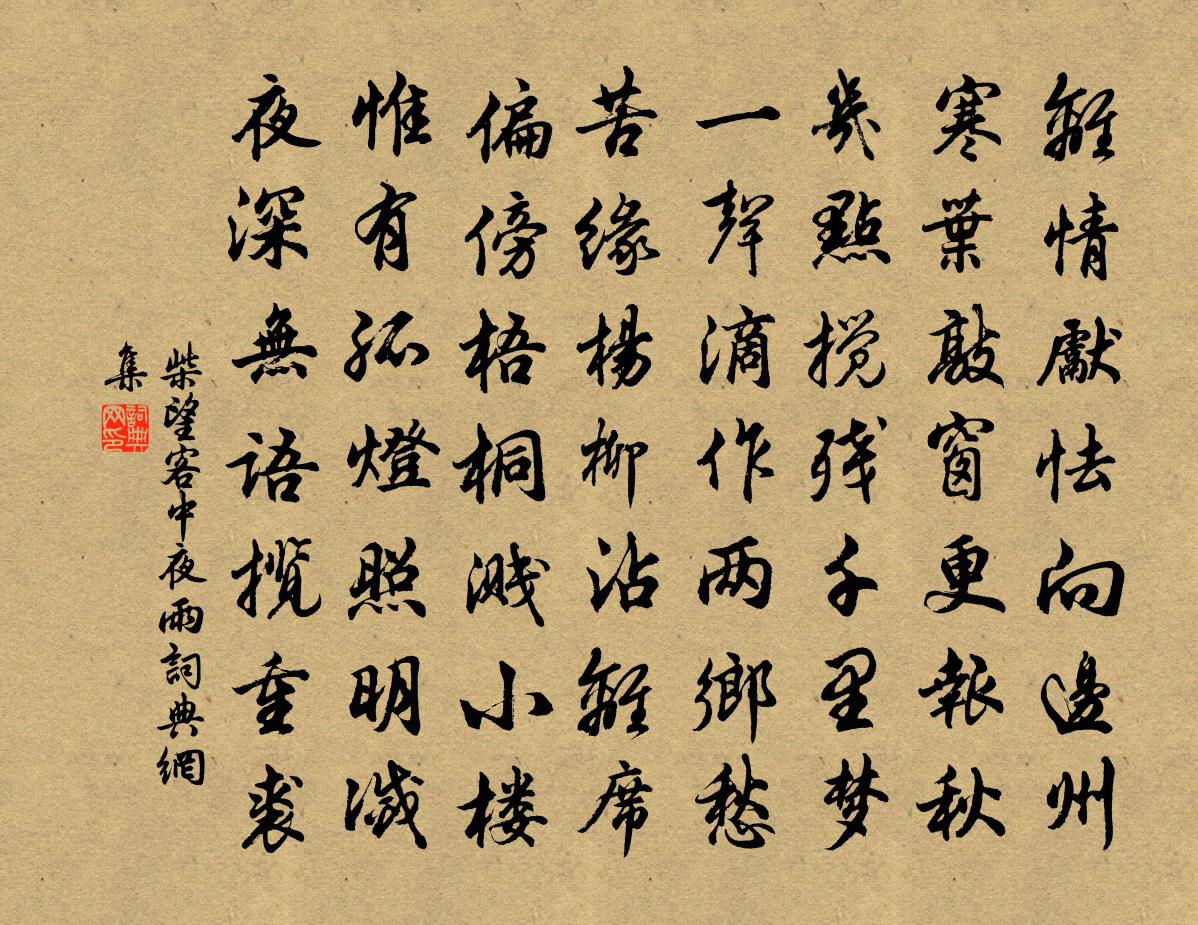 離情厭怯向邊州
寒葉敲窗更報秋
幾點攪残千里梦
一聲滴作两鄉愁
苦緣楊柳沾離席
偏傍梧桐濺小楼
惟有孤燈照明滅
夜深無語攬重裘
柴望客中夜雨詞典網
集
詞典网印